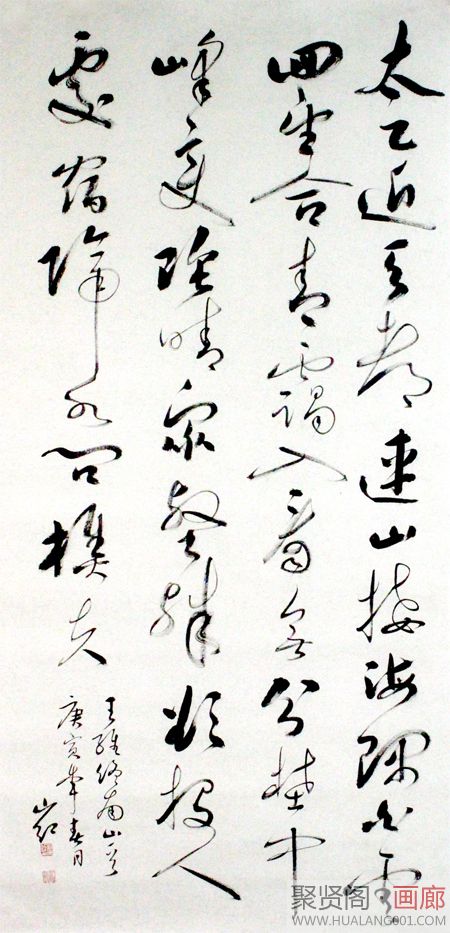 太乙近天都連山接海隅白雲
回望合青靄入看無分埜中
峯變陰晴衆壑殊欲投人
處宿隔水問樵夫
王維終南山
庚寅年春月
聚贤阁画廊
WWW.HUALANG001.COM